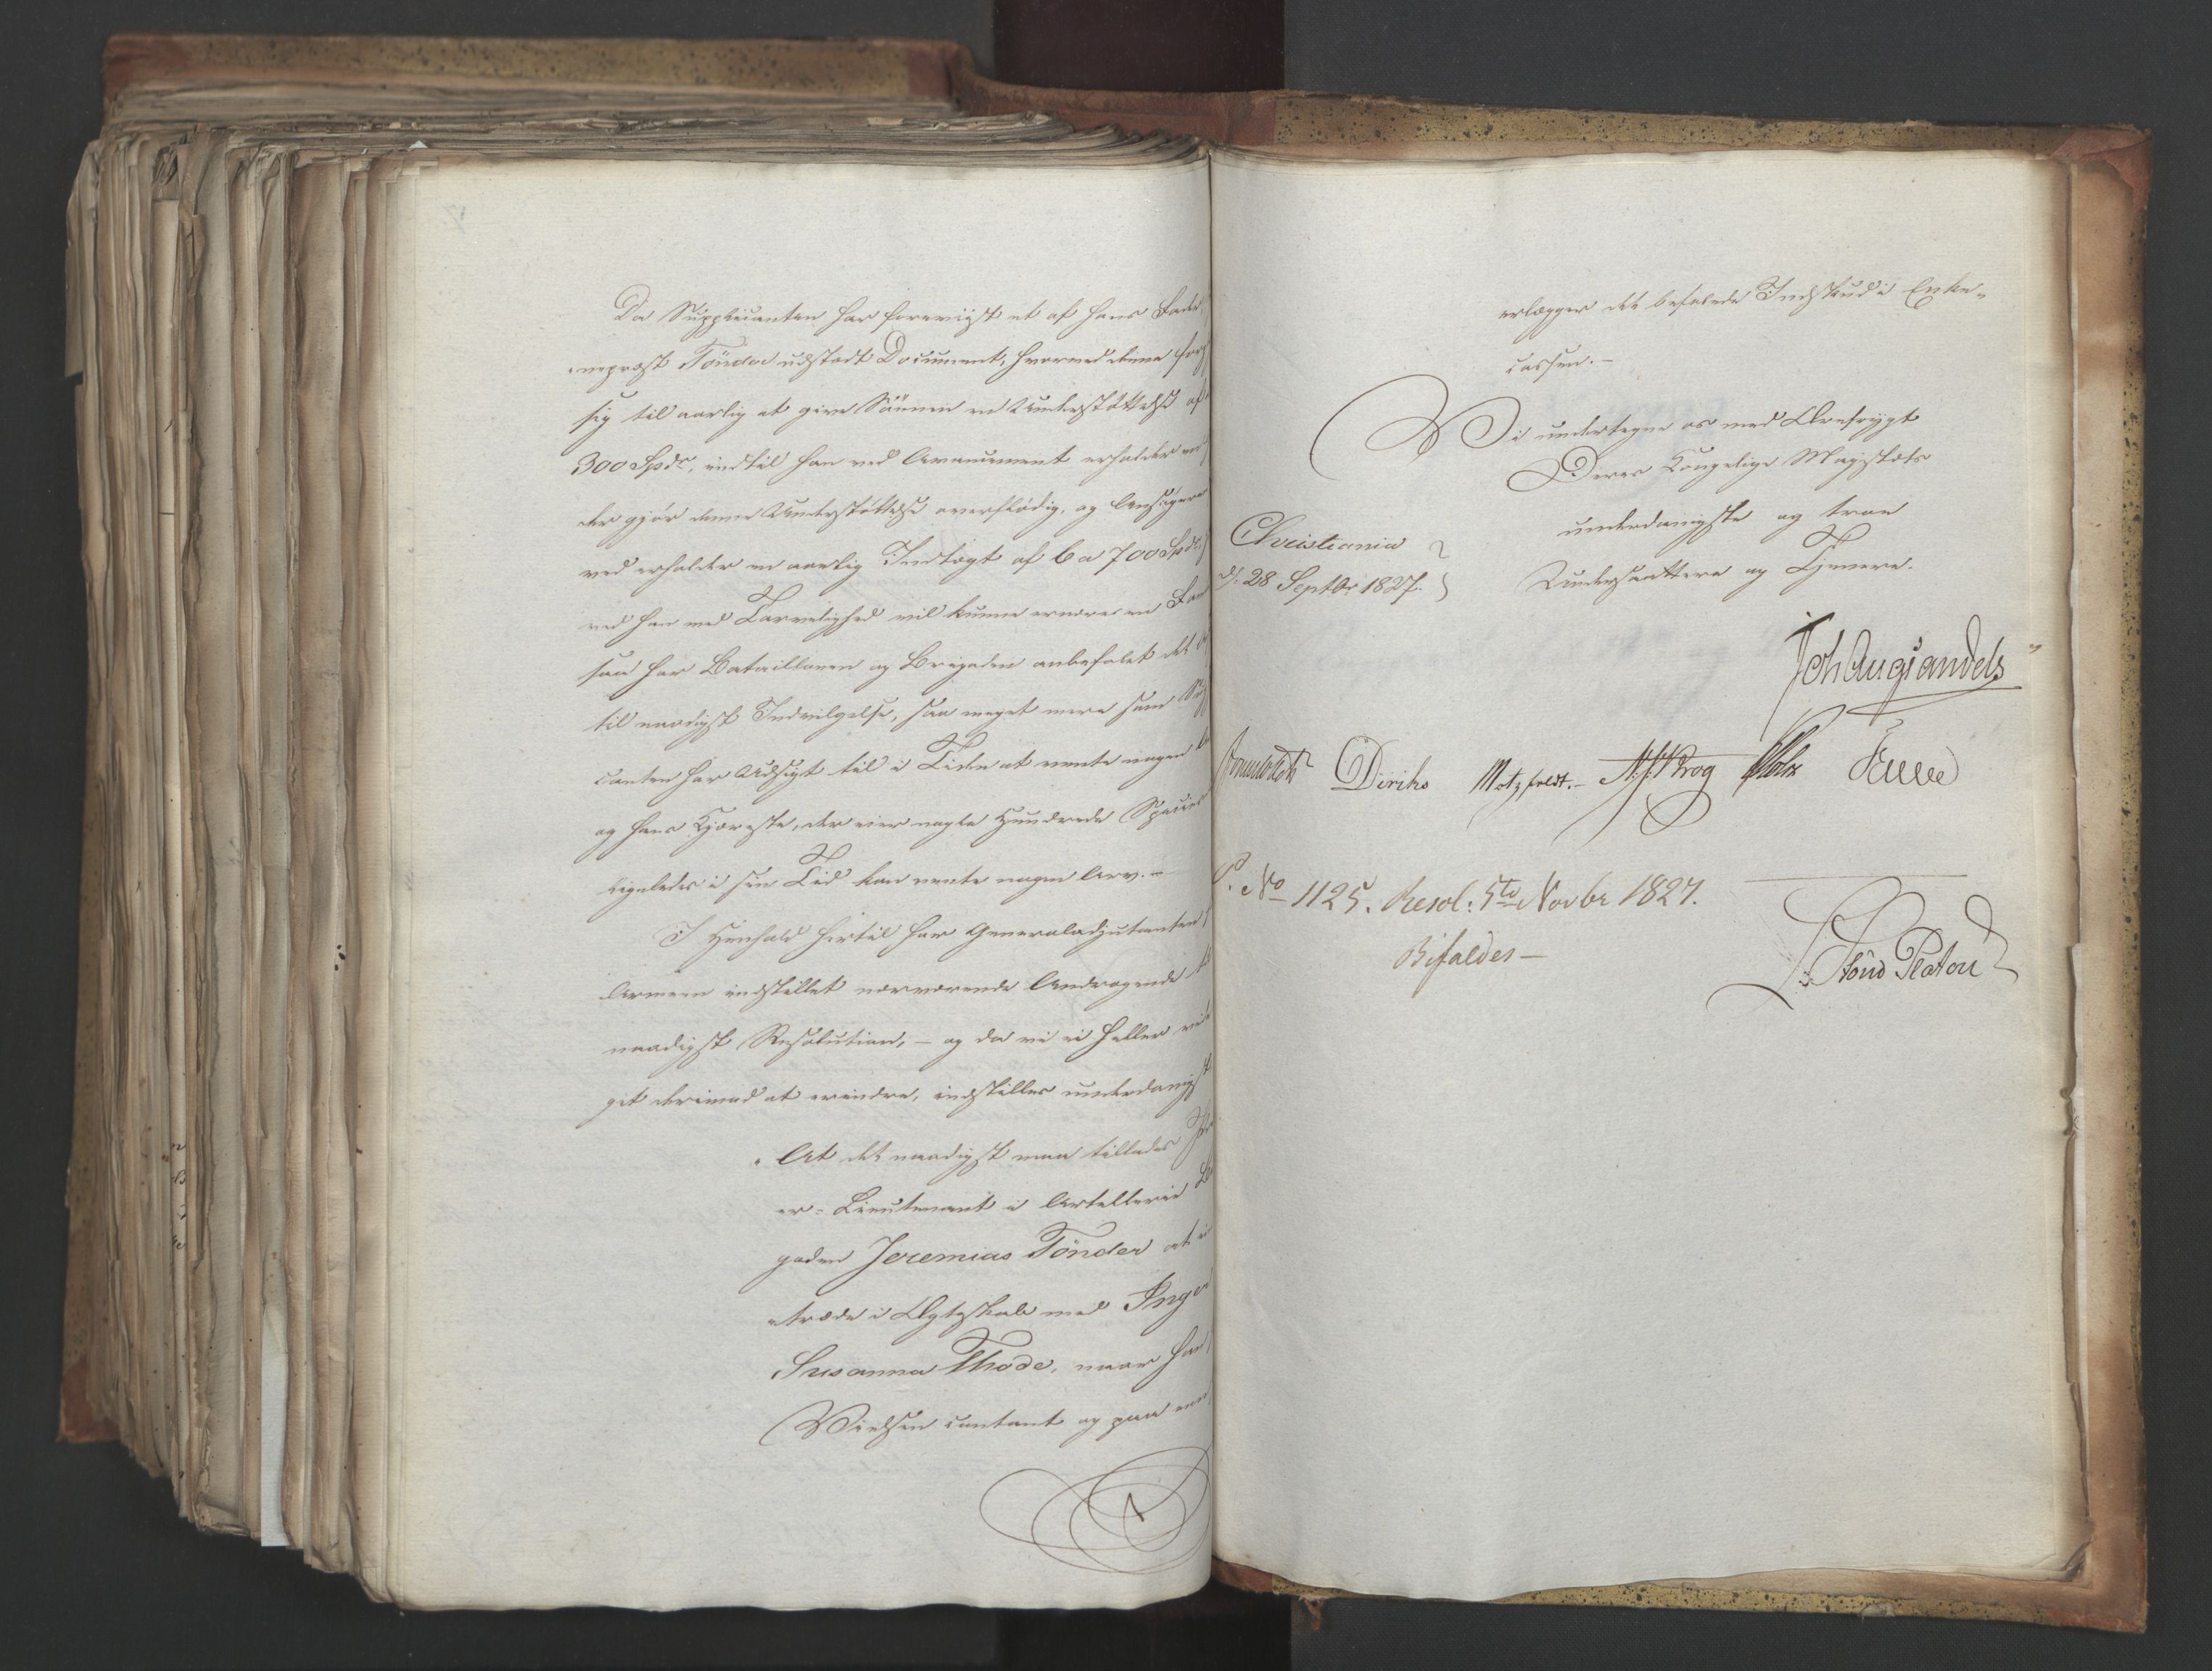 Da Supplicanten har foreviist et af hans Fader,
mprost Tönder udstædt Document, hvorved denne for
sig til aarlig at give Sönnen en Understöttelse af
300 Spdr, indtil han ved Avancement erholder en
der gjör denne Understöttelse overflödig, og Ansögere
ved erholder en aarlig Indtægt af ca 700 Spdr,
ved han med Tarvelighed vil kunne ernære en Fam
saa har Bataillonen og Brigaden anbefalet det
til naadigst Indvilgelse, saa meget mere som Sup
canten har Udsigt til i Tiden at vente nogen
og hans Kjæreste, der eier nogle Hundrede Specier
ligeledes i sin Tid kan vente nogen Arv. –
I Henhold hertil har Generaladjutanten
Armeen indstillet nærværende Andragende
naadigst Resolution, – og da vi ei heller vid
get derimod at erindre, indstilles underdanigst
At det naadigst maa tillades
er-Lieutenant i Artillerie B
gaden Jeremias Tönder at
træde i Ægteskab med Inger
Susanna Thode, naar han
Vielsen contant og paa een
erlægger det befalede Indskud i Enke-
cassen. –
Vi undertegne os med Ærefrygt
Deres Kongelige Majestæts
underdanigste og troe
Undersaattere og Tjenere.
Christiania
d. 28 Septbr 1827.
Joh Aug Sandels
Diriks Motzfeldt. – Krog Holst
No 1125. Resol: 5te Novbr 1827.
Bifaldes –
Platou